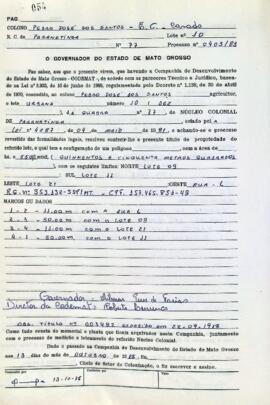 PAG
COLONO PEDRO JOSÉ DOS SANTOS - E.C. - Casado
N. C. PARANATINGA LOTE Nº 10
Nº 77 Processo nº 0903/83
O GOVERNADOR DO ESTADO DE MATO GROSSO
Faz saber, aos que o presente virem, que havendo a Companhia de Desenvolvimento
do Estado de Mato Grosso - CODEMAT, de acordo com os pareceres Técnico e Jurídico, baseados
na Lei nº de 10 de junho de regulamentada pelo Decreto nº 1.138, de 30 de abril
de 1970, concedido ao colono PEDRO JOSÉ DOS SANTOS agricultor,
o lote URBANO 10 (DEZ
) da QUADRA nº 77 do NÚCLEO COLONIAL
DE PARANATINGA criado pela
Lei 4087 de 04 de MAIO de 1981, e estando o processo
revestido das formalidades legais, resolve conferir o presente título de propriedade do
referido lote, o qual tem a configuração de um polígono com a área de
550 m² (QUINHENTOS E CINQUENTA METROS QUADRADOS
) com os seguintes limites NORTE LOTE 09
SUL LOTE 11
LESTE LOTE 21 OESTE RUA - 6
MARCOS OU DADOS
1 - 2 - 11.00m COM A RUA 6
2 - 3 - 50.00m COM O LOTE 09
3 - 4 - 11.00m COM O LOTE 21
4 - 1 - 50.00m COM O LOTE 11
Governador:
Diretor da Codemat:
OBS. TÍTULO Nº 003492 EXPEDIDO EM 22-09-1986
Como tudo consta do memorial e planta que ficam arquivados nesta Companhia, juntamente
com o processo de medição e loteamento do referido Núcleo Colonial.
Dado e passado na Companhia de Desenvolvimento do Estado de Mato Grosso
aos 13 dias do mês de OUTUBRO de 1986. Eu,
Chefe do Setor de Colonização, fiz escrever e assino.
13-10-86